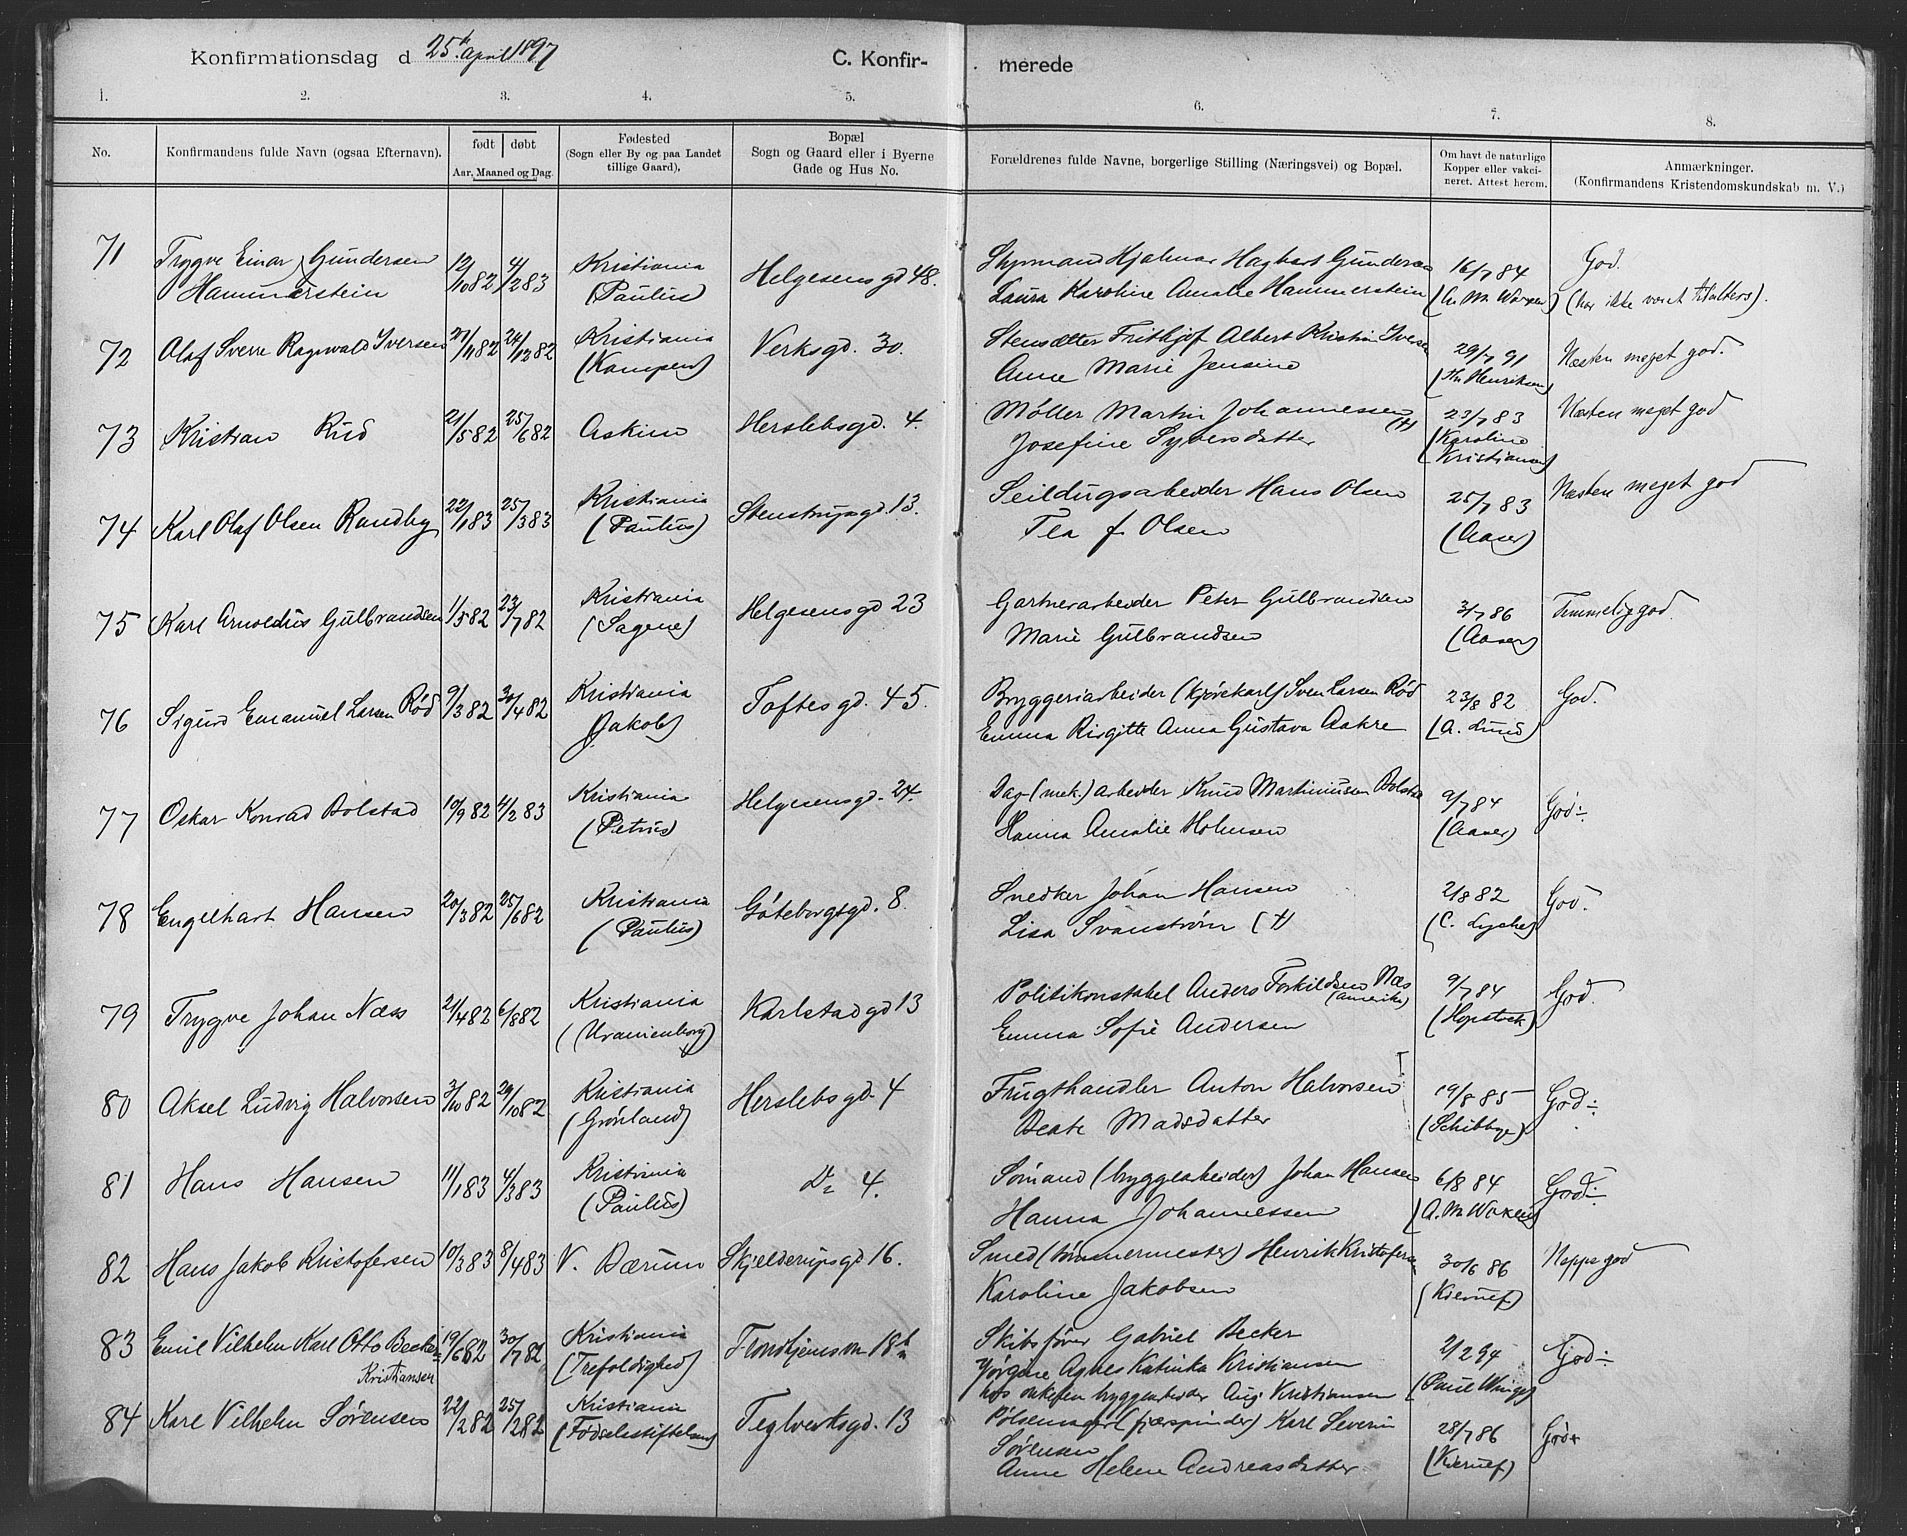 Konfirmationsdag d 25de April 1897
C. Konfir- merede
1. 2. 3. 4. 5. 6. 7. 8.
No.
Konfirmandens fulde Navn (ogsaa Efternavn).
født døbt
Aar, Maaned og Dag.
Fødested
(Sogn eller By og paa Landet
tillige Gaard).
Bopæl
Sogn og Gaard eller i Byerne
Gade og Hus No.
Forældrenes fulde Navne, borgerlige Stilling (Næringsvei) og Bopæl.
Om havt de naturlige
Kopper eller vakci-
neret. Attest herom.
Anmærkninger.
(Konfirmandens Kristendomskundskab m. V.)
71 Trygve Einar Gundersen 12/10 82 4/2 83 Kristiania Helgesensgd 48. Styrmand Hjalmar Hagbart Gundersen 16/7 84 God.
Hammerstein (Paulus) Laura Karoline Amalie Hammerstein (har ikke været tilalters).
72 Olaf Sverre Ragnvald Iversen 21/11 82 24/12 82 Kristiania Verksgd. 30. Frithjof Albert Kristin Iversen 29/7 91 Næsten meget god.
(Kampen) Anne Marie Jensine (Th Henriksen)
73 Kristian Rud 21/5 82 25/6 82 Askim Herslebsgd. 4. Møller Martin Johannessen (†) 23/7 83 Næsten meget god
Josefine Syversdatter (Karoline
Kristiansen)
74 Karl Olaf Olsen Randby 22/1 83 25/3 83 Kristiania Stenstrupsgd. 13. Seildugsarbeider Hans Olsen 25/7 83 Næsten meget god
(Paulus) Tea f. Olsen (Aaser)
75 Karl Arnoldus Gulbrandsen 1/5 82 23/7 82 Kristiania Helgesensgd 23 Gartnerarbeider Peter Gulbrandsen 3/7 86 Temmelig god.
(Sagene) Marie Gulbrandsen (Aaser)
76 Sigurd Emanuel Larsen Rød 9/3 82 30/4 82 Kristiania Toftesgd. 45. Bryggeriarbeider (kjørekarl) Sven Larsen Rød 23/8 82 God.
(Jakob) Emma Birgitte Anna Gustava Aakre (A. Lund)
77 Oskar Konrad Bolstad 10/9 82 4/2 83 Kristiania Helgesensgd. 24. Dag (mek.) arbeider Knud Martiniusen Bolstad 9/7 84 God ÷
(Petrus) Hanna Amalie Holmsen (Aaser)
78 Engelhart Hansen 20/3 82 25/6 82 Kristiania Göteborgsgd. 8. Snedker Johan Hansen 2/8 82 God.
(Paulus) Lisa Svanstrøm (†)
79 Trygve Johan Næss 21/4 82 6/8 82 Kristiania Karlstadgd 13 Politikonstabel Anders Torkildsen Næs 9/7 84 God.
(Uranienborg) (Amerika) Emma Sofie Andersen (Hopstock)
80 Aksel Ludvig Halvorsen 3/10 82 29/10 82 Kristiania Herslebsgd. 4 Frugthandler Anton Halvorsen 19/8 85 God ÷
(Grønland) Beate Madsdatter (Schibbye)
81 Hans Hansen 11/1 83 4/3 83 Kristiania Do 4. Sømand (bryggearbeider) Johan Hansen 6/8 84 God ÷
(Paulus) Hanna Johannessen
82 Hans Jakob Kristofersen 10/3 83 8/4 83 V. Bærum Skjelderupsgd 16. Smed (tømmermester) Henrik Kristofersen 30/6 86 Neppe god
Karoline Jakobsen (Kierulf)
83 Emil Vilhelm Karl Otto Becker= 19/6 82 30/7 82 Kristiania Trondhjemsvn 18 b Skibsfører Gabriel Becker 2/2 94 God ÷
Kristiansen (Trefoldighed) Jørgine Agnes Katinka Kristiansen (Paul Winge)
hos onkelen bryggearbeider Aug. Kristiansen
84 Karl Vilhelm Sørensen 22/2 82 25/2 82 Kristiania Teglverksgd. 13 Pølsemager (fjærspinder) Karl Severin 28/7 86 God+
(Fødselsstiftelsen) Sørensen (Kierulf)
Anne Helene Andreasdatter.